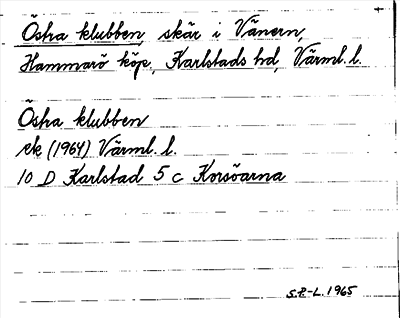 Östra klubben, skär i Vänern,
Hammarö köp., Karlstads hd, Värml. l.
Östra klubben
ek (1964) Värml. l.
10 D Karlstad 5 c Korsöarna
S.R-L. 1965